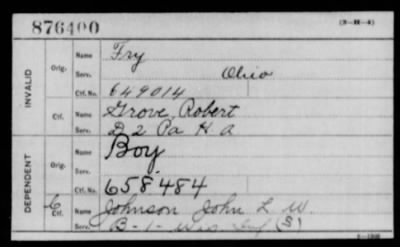 876400
(3-M-4)
INVALID
Orig.
Name Fry
Serv. Ohio
Ctf. No. 649014
Ctf.
Name Grove, Robert
Serv. D 2 Pa H A
DEPENDENT
Orig.
Name Boy
Serv.
Ctf. No. 658.484
6
Ctf.
Name Johnson John L. W.
Serv. B-1- Wis Inf (S)